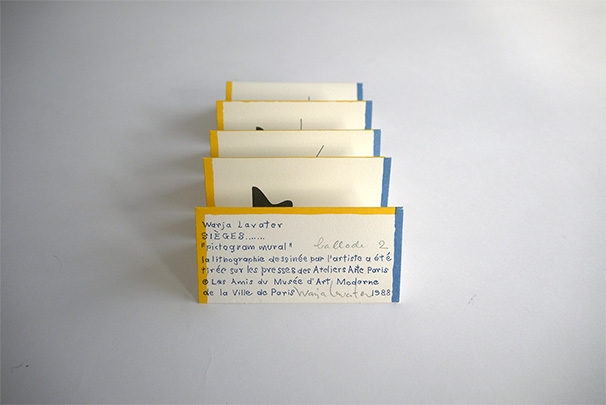 Warja Lavater
SIÈGES.......
"pictogram mural" ballade 2
la lithographie dessinée par l'artiste a été
tirée sur les presses des Ateliers Arte Paris
© Les Amis du Musée d'Art Moderne
de la Ville de Paris Warja Lavater 1988